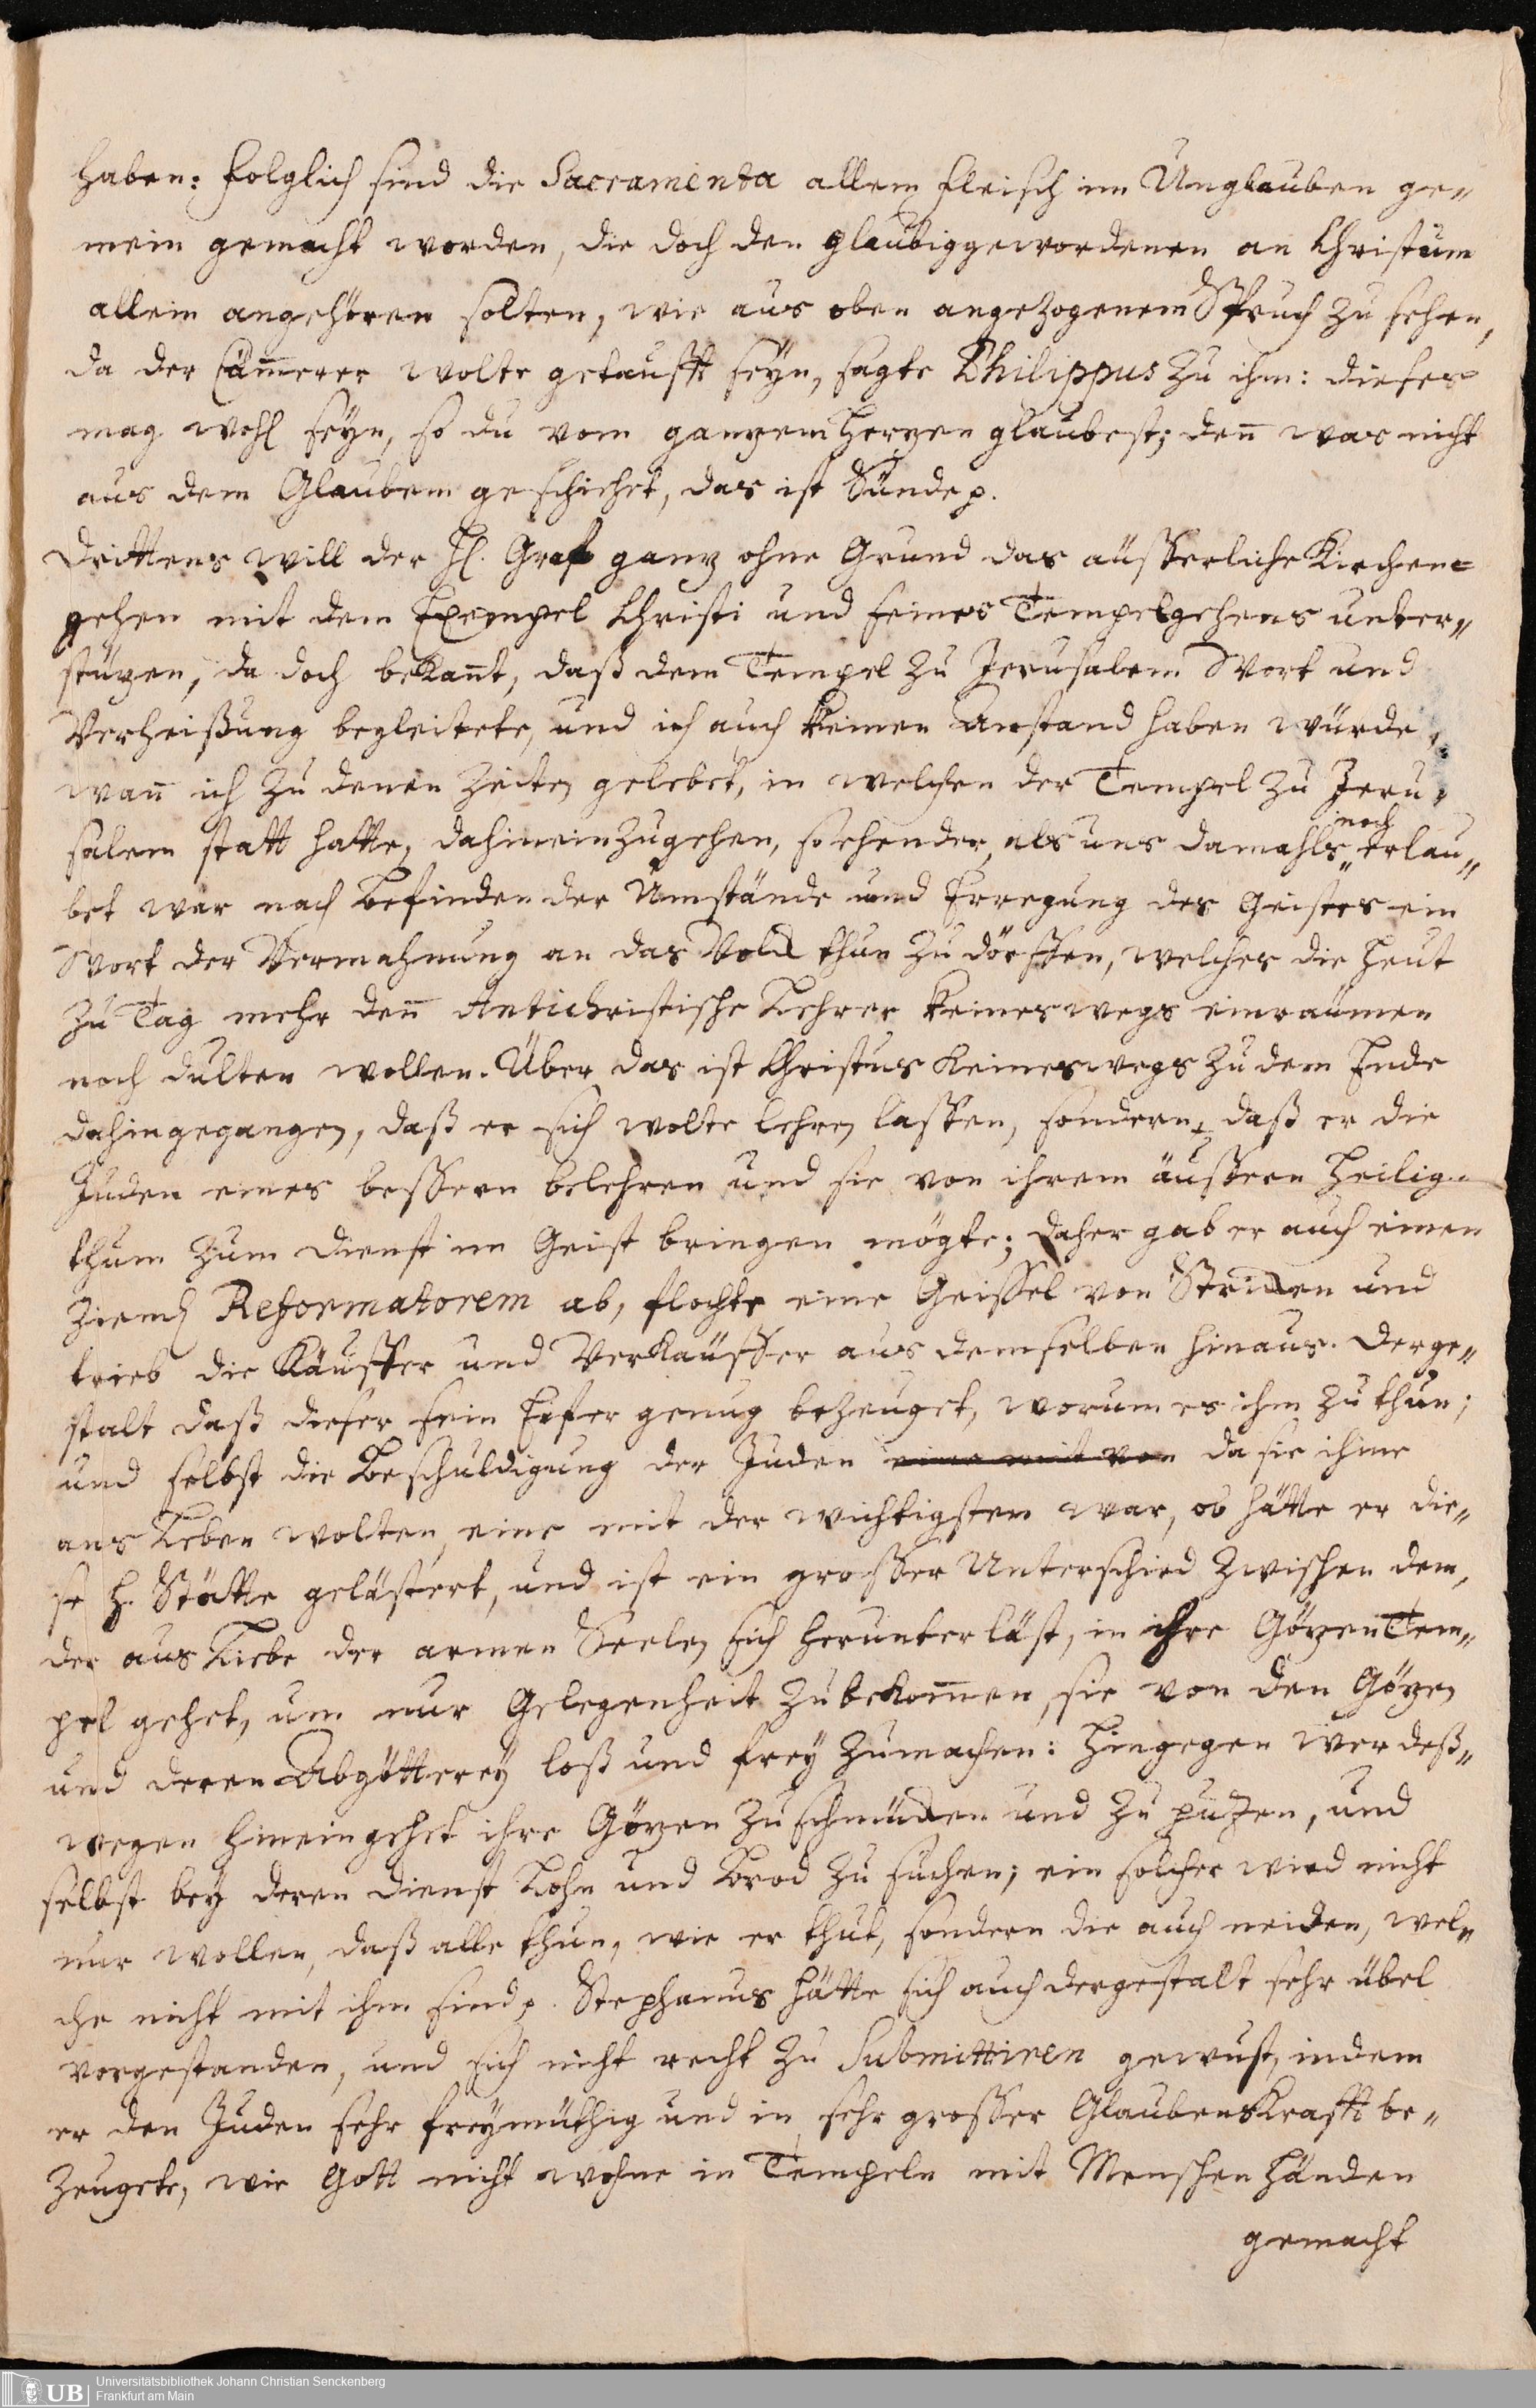 haben: folglich sind die Sacramenta allem fleisch im Unglauben ge„
mein gemacht worden, die doch den glaubiggewordenen an Christum
allein angehören solten, wie aus oben angezogenem Spruch zu sehen,
da der Cam̅erer wolte getaufft seyn, sagte Philippus zu ihm: dieses
mag wohl seyn, so du vom ganzem Herzen glaubest; den̅ was nicht
aus dem Glaubem geschiehet, das ist Sünde p.
Drittens will der H. Graf ganz ohne Grund das äusserliche Kirchen=
gehen mit dem Exempel Christi und seines Tempelgehens unter„
stüzen, da doch bekan̅t, daß dem Tempel zu Jerusalem Wort und
Verheißung begleitete, und ich auch keinen Anstand haben würde,
wan̅ ich zu denen Zeiten gelebet, in welchen der Tempel zu Jeru„
noch
salem statt hatte, dahineinzugehen, so ehender, als uns damahls„ erlau„
bet war nach Befinden der Umstände und Erregung des Geistes ein
Wort der Vermahnung an das Volck thun zu dörffen, welches die heut
zu Tag mehr den̅ Antichristische Lehrer keineswegs einräumen
noch dulten wollen. Über das ist Christus keineswegs zu dem Ende
dahingegangen, daß er sich wolte lehren lassen, sondern, daß er die
Juden eines bessern belehren und sie von ihrem äussern Heilig„
thum zum Dienst im Geist bringen mögte; daher gab er auch einen
ziemch Reformatorem ab, flochte eine Geissel von Stricken und
trieb die Käuffer und Verkäuffer aus demselben hinaus. Derge„
stalt daß dieser sein Eifer genug bezeuget, worum es ihm zu thun;
und selbst die Beschuldigung der Juden eine mit von da sie ihme
ans Leben wolten, eine mit der wichtigsten war, ob hätte er die„
se H. Stätte gelästert, und ist ein grosser Unterschied zwischen dem,
der aus Liebe der armen Seelen sich herunterläst, in ihre GözenTem„
pel gehet, um nur Gelegenheit zu bekom̅en, sie von den Gözen
und deren Abgötterey loß und frey zumachen: Hingegen wer deß„
wegen hineingehet ihre Gözen zu schmücken und zu puzen, und
selbst bey deren Dienst Lohn und Brod zu suchen; ein solcher wird nicht
nur wollen, daß alle thun, wie er thut, sondern die auch neiden, wel„
che nicht mit ihm sind p. Stephanus hätte sich auch dergestalt sehr übel
vorgestanden, und sich nicht recht zu Submittiren gewust, indem
er den Juden sehr freymüthig und in sehr grosser Glaubenskrafft be„
zeugete, wie Gott nicht wohne in Tempeln mit Menschen Händen
gemacht
UB
Universitätsbibliothek Johann Christian Senckenberg
Frankfurt am Main